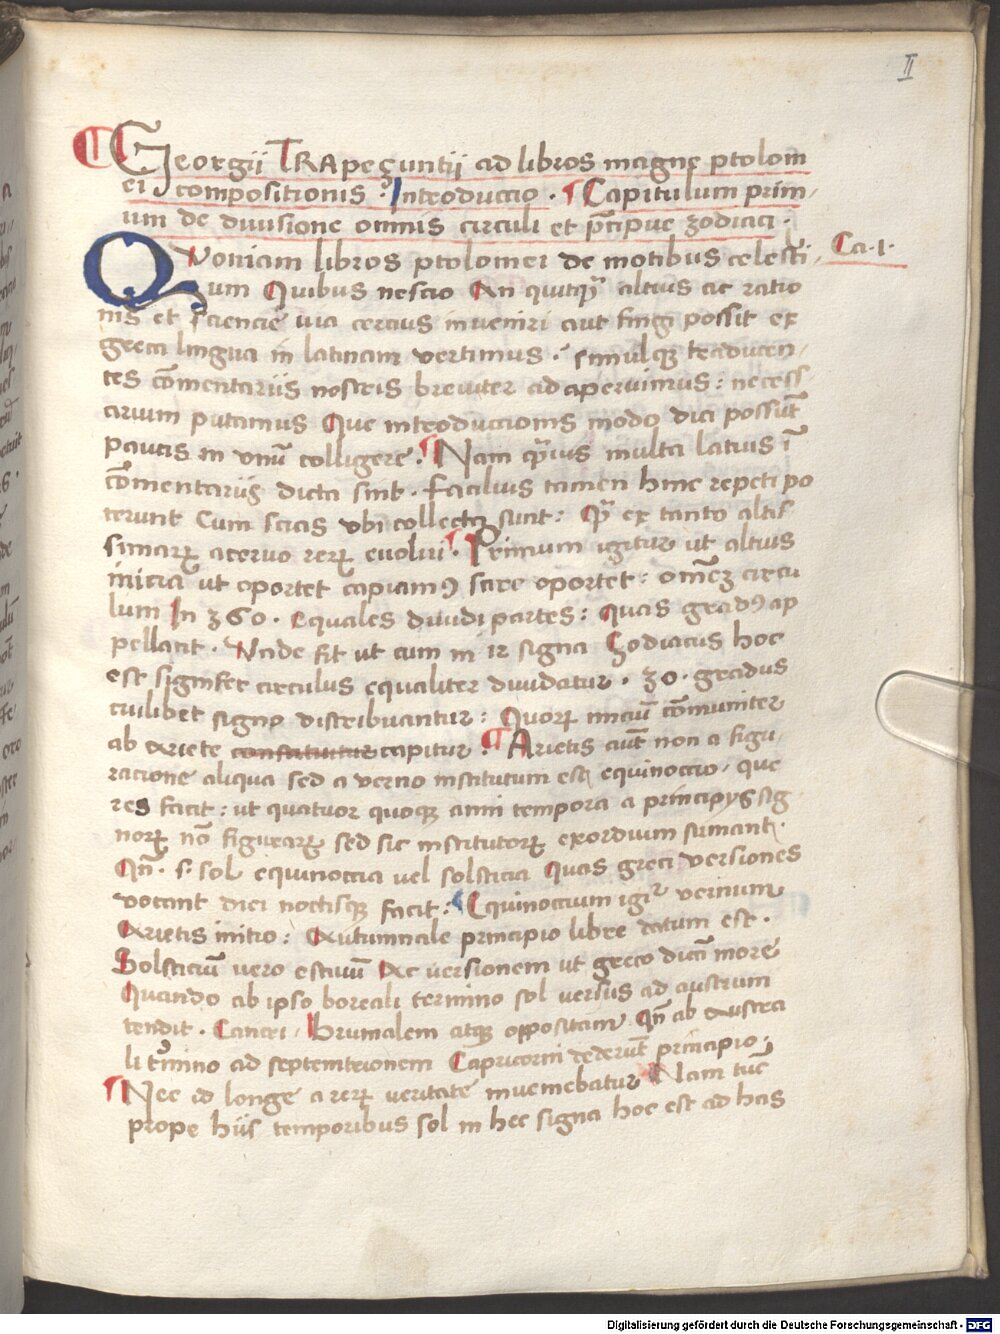 II
Georgii Trapeçuntij ad libros magne ptolom
ei compositionis Introduccio. Capitulum prim-
um de diuisione omnis circuli et p̄cipue zodiaci.
Quoniam libros ptolomei de motibus celesti-
Ca. 1.
um Quibus nescio An quitq̄ altius ac ratio
nis et sciencie uia cercius inveniri aut fingi possit ex
greca lingua in latinam vertimus. simulqꝫ traducen-
tes cōmentariis nostris breuiter ad aperuimus: necess
arium putamus Que introduccionis modo dici possūt
paucis in vnū colligere. Nam q̄uis multa latius ī
cōmentariis dicta sint. facilius tamen hinc repeti po
terunt Cum scias vbi collecta sunt: Q̄ ex tanto altis
simarꝝ aceruo rerꝝ euolui. Primum igitur ut altius
inicia ut oportet capiamꝰ scire oportet: omēꝫ circu
lum In 360. Equales diuidi partes: quas gradꝰ ap
pellant. Vnde fit ut cum in 12 signa zodiacus hoc
est signifer circulus equaliter diuidatur. 30. gradus
cuilibet signo distribuantur: Quorꝝ iniciū cōmuniter
ab Ariete constituitur capitur. Arietis aūt non a figu
racione aliqua sed a verno institutum est equinoccio, que
res facit: ut quatuor quoqꝫ anni tempora a principijs sig
norꝝ nō figurarꝝ sed sic institutorꝝ exordium sumant.
Qn̄. s. sol equinoccia uel solsticia Quas greci versiones
vocant diei noctisqꝫ facit: Equinoccium igr̄ vernum
Arietis initio: Autumnale principio libre datum est.
Solsticiū uero estiuū Ac uersionem ut greco dicā more
Quando ab ipso boreali termino sol versus ad austrum
tendit. Cancri. Brumalem atqꝫ oppositam Qn̄ ab Austra
li t̄mino ad septemtrionem Capricorni dederūt principio:
Nec id longe a rerꝝ ueritate inueniebatur Nam tūc
prope hiis temporibus sol in hec signa hoc est ad has
Digitalisierung gefördert durch die Deutsche Forschungsgemeinschaft - DFG